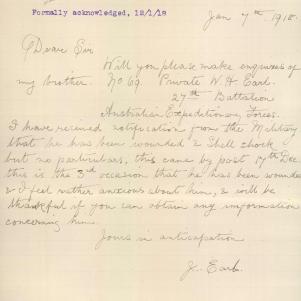 Formally acknowledged, 12/1/18
Jan 7th 1918.
Dear Sir
Will you please make enquires of
my brother. No 69. Private W. H. Earl.
27th Battalion
Australian Expeditionary Forces.
I have received notification from the Military
that he has been wounded & Shell shock
but no particulars, this came by post 17th Dec.
this is the 3rd occasion that he has been wounded
& I feel rather anxious about him, & will be
thankful if you can obtain any information
concerning him.
Yours in anticipation
J. Earl.